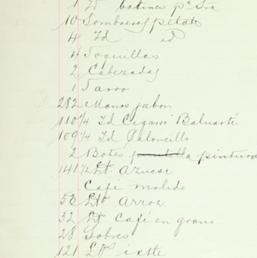 1 Id botines pa Sra
10 Sombreros petate
4 Id Id
4 Toquillas
2 Cabezadas
1 Tarro
282 Manos jabon
110 1/4 Id Cigarros Baluarte
109 1/4 Id Palencillo
2 Botes pintura
141 1/2 Lb Azucar
Cafe molido
53 Lb Arroz
32 Lb Café en grano
28 Sobres
121 Lbs ixtle